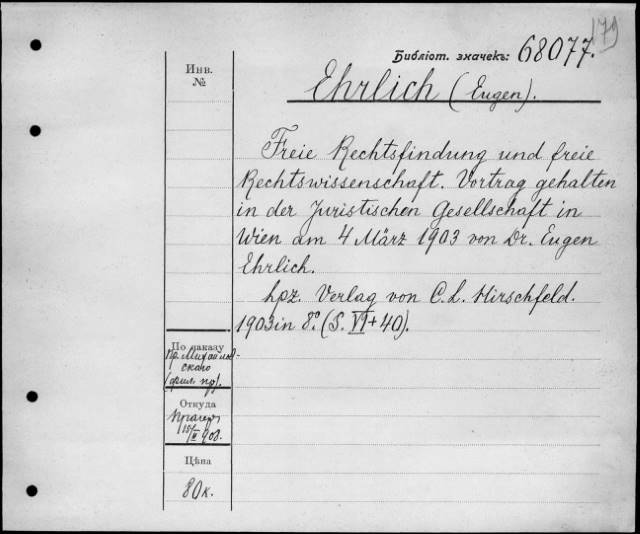 179
Библіот. значекъ: 68077.
Инв.
№
Ehrlich (Eugen).
Freie Rechtsfindung und freie
Rechtswissenschaft. Vortrag gehalten
in der Juristischen Gesellschaft in
Wien am 4 März 1903 von Dr. Eugen
Ehrlich.
Lpz. Verlag von C. L. Hirschfeld.
1903 in 8.° (S. VI + 40).
По заказу
пр. Михайлов-
скаго
Откуда
15/II 908.
Цѣна
80 к.